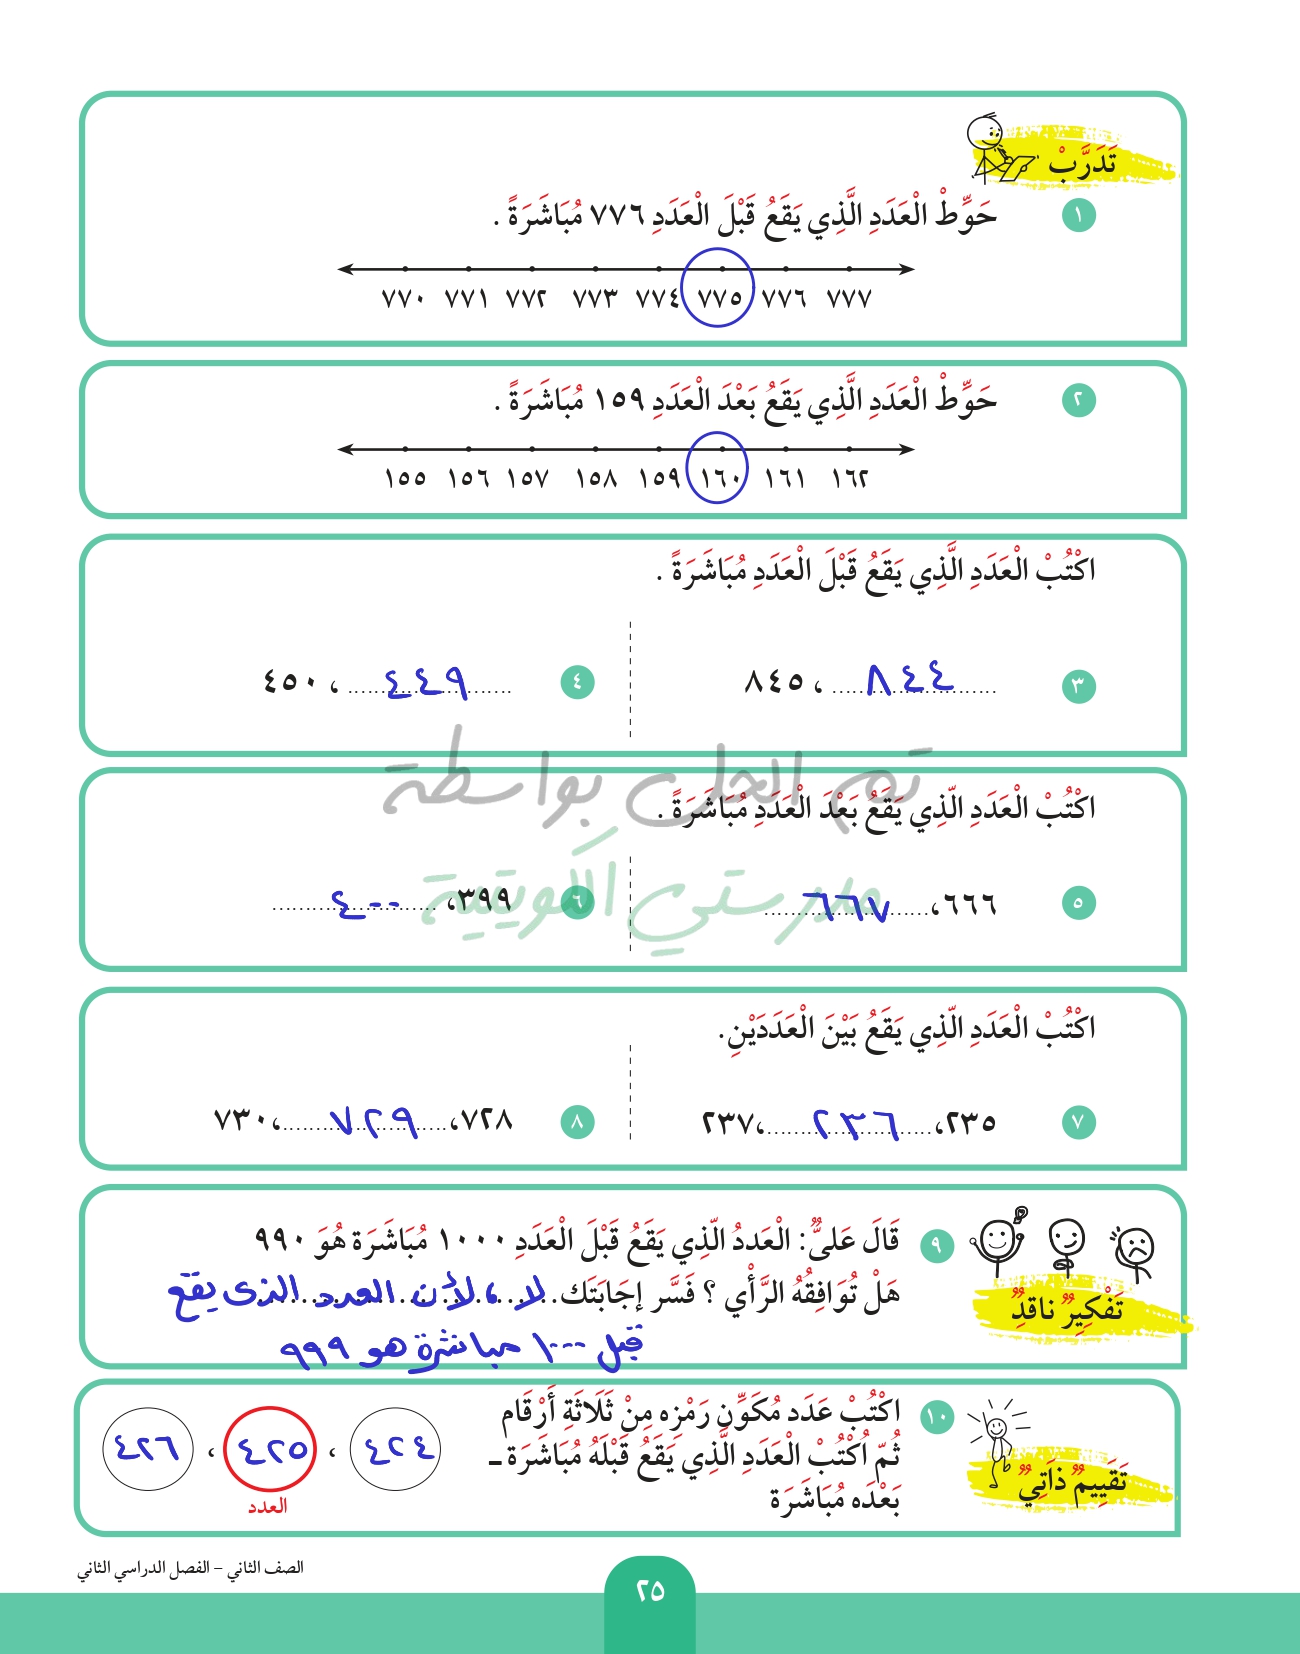 تَدَرَّبْ
١ حَوِّطْ الْعَدَدِ الَّذِي يَقَعُ قَبْلَ الْعَدَدِ ٧٧٦ مُبَاشَرَةً .
٧٧٠ ٧٧١ ٧٧٢ ٧٧٣ ٧٧٤ ٧٧٥ ٧٧٦ ٧٧٧
٢ حَوِّطْ الْعَدَدِ الَّذِي يَقَعُ بَعْدَ الْعَدَدِ ١٥٩ مُبَاشَرَةً .
١٥٥ ١٥٦ ١٥٧ ١٥٨ ١٥٩ ١٦٠ ١٦١ ١٦٢
اكْتُبْ الْعَدَدِ الَّذِي يَقَعُ قَبْلَ الْعَدَدِ مُبَاشَرَةً .
٣ ٨٤٤ ، ٨٤٥
٤ ٤٤٩ ، ٤٥٠
تم الحل بواسطة
اكْتُبْ الْعَدَدِ الّذِي يَقَعُ بَعْدَ الْعَدَدِ مُبَاشَرَةً .
مدرستي الكويتية
٥ ٦٦٦، ٦٦٧
٦ ٣٩٩، ٤٠٠
اكْتُبْ الْعَدَدِ الّذِي يَقَعُ بَيْنَ الْعَدَدَيْنِ.
٧ ٢٣٥، ٢٣٦ ،٢٣٧
٨ ٧٢٨، ٧٢٩ ،٧٣٠
تَفْكِيرٌ ناقدٌ
٩ قَالَ عَليٌّ: الْعَددُ الّذِي يَقَعُ قَبْلَ الْعَدَدِ ١٠٠٠ مُبَاشَرَة هُوَ ٩٩٠
هَلْ تُوَافِقُهُ الرَّأْي ؟ فَسَّر إجَابَتَك لا ، لأن العدد الذي يقع
قبل ١٠٠٠ مباشرة هو ٩٩٩
تَقَييمٌ ذَاتِيٌ
١٠ اكْتُبْ عَدَد مُكَوِّنِ رَمْزِه مِنْ ثَلَاثَةِ أَرْقَام
ثُمّ اُكْتُبْ الْعَدَدِ الَّذِي يَقَعُ قَبْلَهُ مُبَاشَرَة ـ
بَعْدَه مُبَاشَرَة
٤٢٤ ، ٤٢٥ ، ٤٢٦
العدد
الصف الثاني – الفصل الدراسي الثاني
٢٥